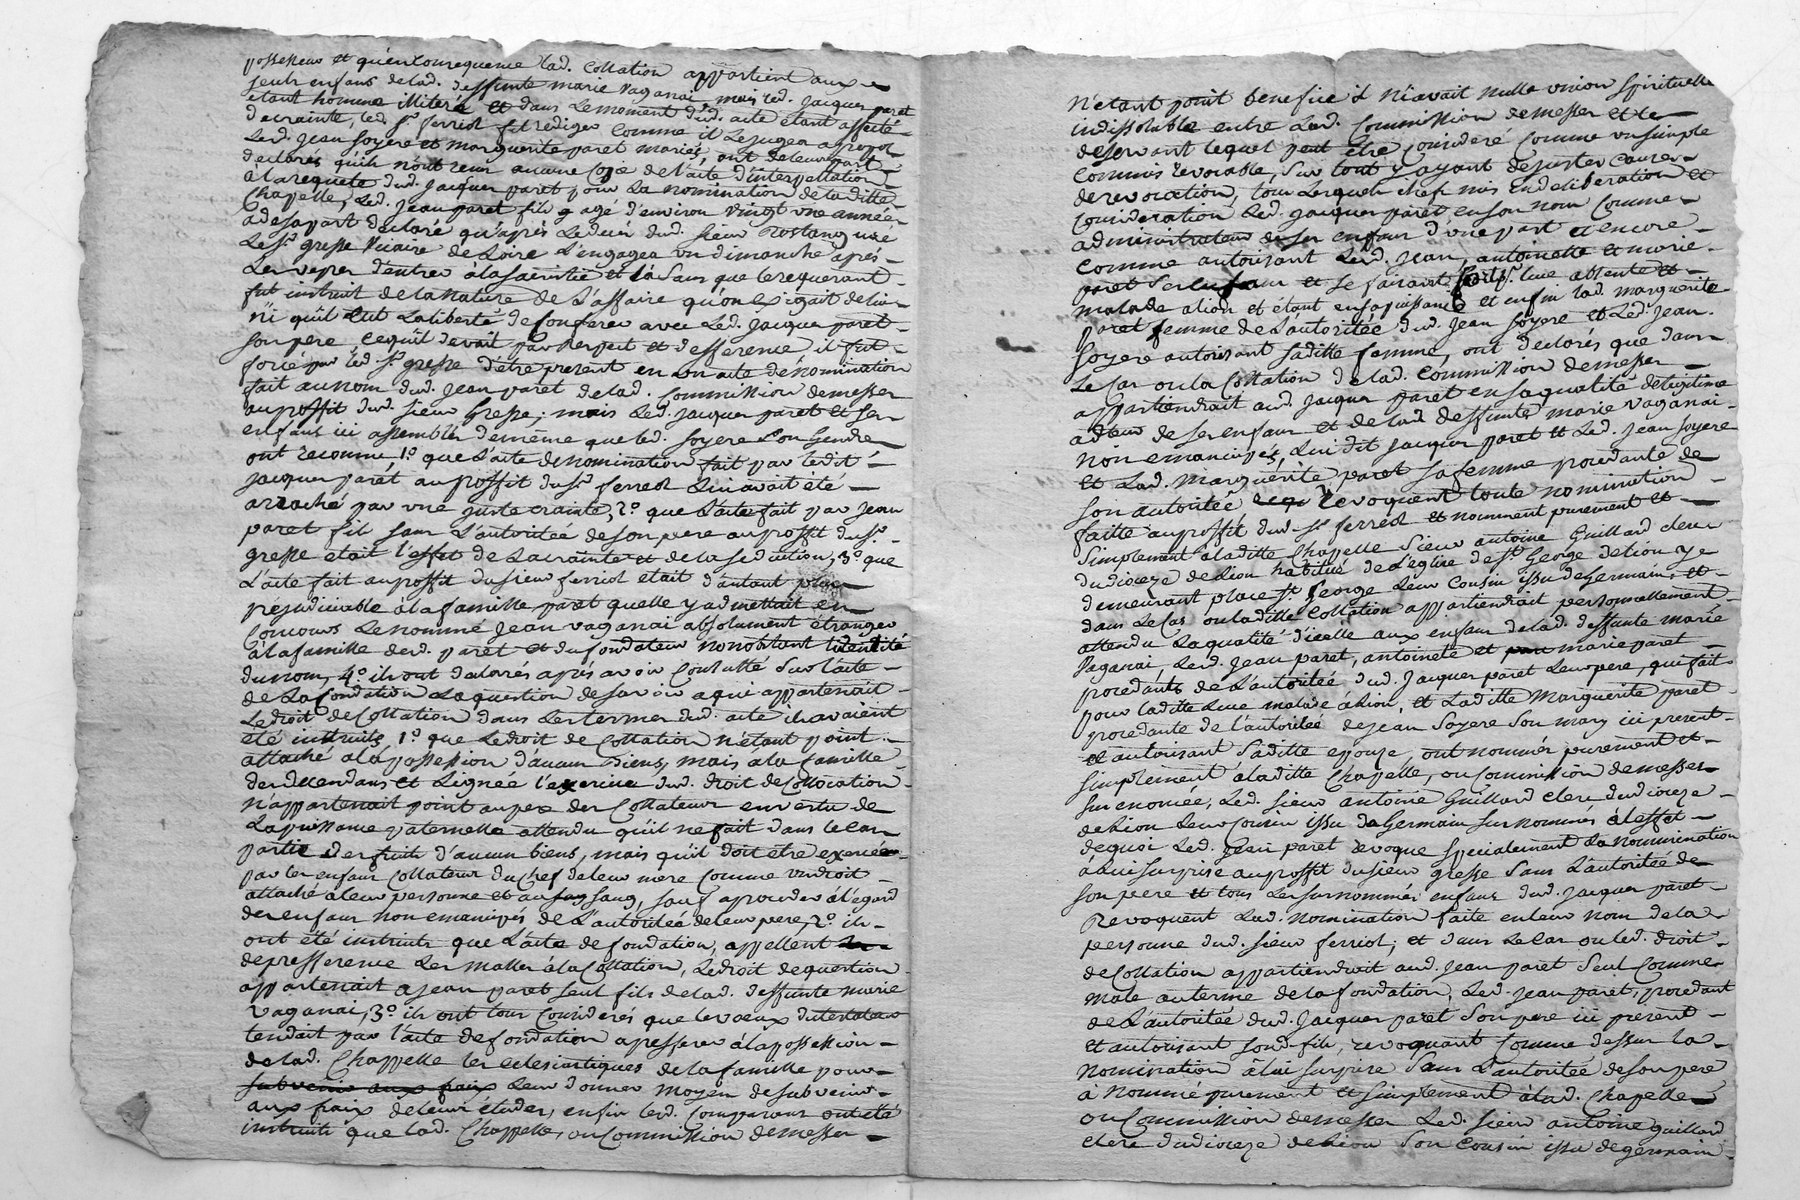 possesseur et qu'en consequence lad. Collation appartient aux
seuls enfans de lad. deffunte marie vaganai mais led. jacques paret
etant homme illiteré et dans le moment dud. acte étant affecté
de crainte, led. sr. ferriol fit rediger comme il le jugea apropos
Led. jean soyere et marguerite paret mariés, ont de leur part
declarés qu'ils n'ont reçu aucune copie de l'acte d'interpellation
à la requête dud. jacques paret pour la nomination de laditte
Chapelle, Led. jean paret fils agé d'environ vingt une année
a de sa part declaré qu'après le decès dud. sieur Rostang curé
Le sr. gresse vicaire de Loire L'engagea un dimanche après
Les vepres d'entrer à la sacristie et là sans que le requerant
fut instruit de la nature de l'affaire qu'on exigait de lui
ni qu'il eut la liberté de conferer avec Led. jacques paret
son pere, ce qu'il devait par respect et defference il fut
forcé par led. sr. gresse d'être present en un acte de nomination
fait au nom dud. jean paret de lad. Commission de messes
au proffit dud. sieur Gresse; mais Led. jacques paret et ses
enfans ici assemblés de même que led. soyere son Gendre
ont reconnu 1.o que L'acte de nomination fait par ledit
jacques parét au proffit du sr. ferreol Lui avait été
arraché par une juste crainte, 2.o que L'acte fait par jean
paret fils sans L'autoritée de son pere au proffit du sr.
gresse etait l'effet de La crainte et de la seduction, 3.o que
L'acte fait au proffit du sieur ferriol etait d'autant plus
prejudiciable à la famille paret quelle y admettait en
Concours Le nommé jean vaganai absolument etranger
à la famille desd. paret et du fondateur nonobstant lidentité
du nom, 4.o ils ont declarés après avoir consulté sur l'acte
de La fondation La question de savoir a qui appartenait
Le droit de Collation dans les termes dud. acte ils avaient
été instruits 1.o que Le droit de Collation n'etant point
attaché à la possession d'aucun biens, mais a la famille
des descendans et Lignée l'exercice dud. droit de Collocation
n'appartenait point au pere des Collateurs en vertu de
La puissance paternelle attendu qu'il ne fait dans le cas
partie des fruits d'aucun biens, mais qu'il doit etre exercée
par les enfans Collateurs du Chef de leur mere Comme un droit
attaché à leur personne et au sang, sauf a proceder à l'égard
des enfans non emancipés de L'autoritée de leur pere, 2.o ils
ont été instruits que L'acte de fondation, appellent
de prefference Les males à la Collation, Le droit de question
appartenait a jean paret seul fils de lad. deffunte marie
vaganai, 3.o ils ont tous considerés que le voeux du testateur
tendait par l'acte de fondation a presserer à la possession
de lad. Chappelle les eclesiastiques de la famille pour
subvenir aux fraix Leur donner moyen de subvenir
aux fraix de leurs études, enfin lesd. Comparans ont été
instruits que lad. Chappelle, ou Commission de messes
N'etant point benefice il n'avait nulle union spirituelle
indissoluble entre Lad. Commission de messes et le
deservant lequel peut etre consideré comme un simple
commis revocable, sur tout y ayant de justes causes
de revocation, tous Lesquels chefs mis en deliberation et
consideration Led. jacques parét en son nom Comme
administrateur de ses enfans d'une part et encore
comme autorisant Led. jean, antoinette et marie
paret ses enfans et se faisant fort pr. Luce absente et
malade a lion et étant en sa puissance et enfin lad. marguerite
paret femme de L'autoritée dud. jean soyere et Led. jean
soyere autorisant saditte femme, ont declarés que dans
Le cas ou la Collation de lad. commission de messes
appartiendrait aud. jacques paret en sa qualité de legitime
adteur de ses enfans et de lad deffunte marie vaganai
non emancipés, Ledit jacques paret et Led. jean soyere
et Lad. marguerite paret sa femme procedante de
son autoritée revoquent toute nomination
faitte au proffit dud. sr. ferreol et nomment purement et
simplement à laditte Chappelle sieur antoine Guillard clerc
du diocèze de Lion habitué de L'église de st. George de lion y
demeurant place st. George Leur Cousin issu de Germain, et
dans Le Cas ou laditte Collation appartiendrait personnellement
attendu La qualité d'icelle aux enfans de lad. deffunte marie
vaganai, Led. jean paret, antoinete et marie paret
procedants de L'autoritée dud. jacques paret Leur pere, que fait
pour laditte Luce malade à Lion, et Laditte Marguerite paret
procedante de l'autoritée de jean Soyere Son mary ici present
et autorisant Saditte epouze, ont nommés purement et
simplement à laditte Chapelle, ou Commission de messes
sus enoncée, Led. sieur antoine Guillard clerc du diocèze
de Lion Leur cousin issu de Germain sus nommés à l'effet
de quoi Led. jean paret revoque specialement La nomination
à lui surprise au proffit du sieur gresse Sans L'autoritée de
son pere et tous Les surnommés enfans dud. jacques paret
Revoquent Lad. nomination faite en leur nom de la
personne dud. sieur ferriol; et dans Le Cas ou led. droit
de Collation appartiendroit aud. jean paret seul Comme
male au terme de la fondation, Led. jean paret, procedant
de L'autoritée dud. jacques paret Son pere ici present
et autorisant sond. fils, revoquant Comme dessus la
nomination à lui surprise Sans L'autoritée de son pere
à nommé purement et simplement à lad. Chapelle
ou Commission de messes Led. sieur antoine guillard
clerc du diocèze de Lion son cousin issu de germain